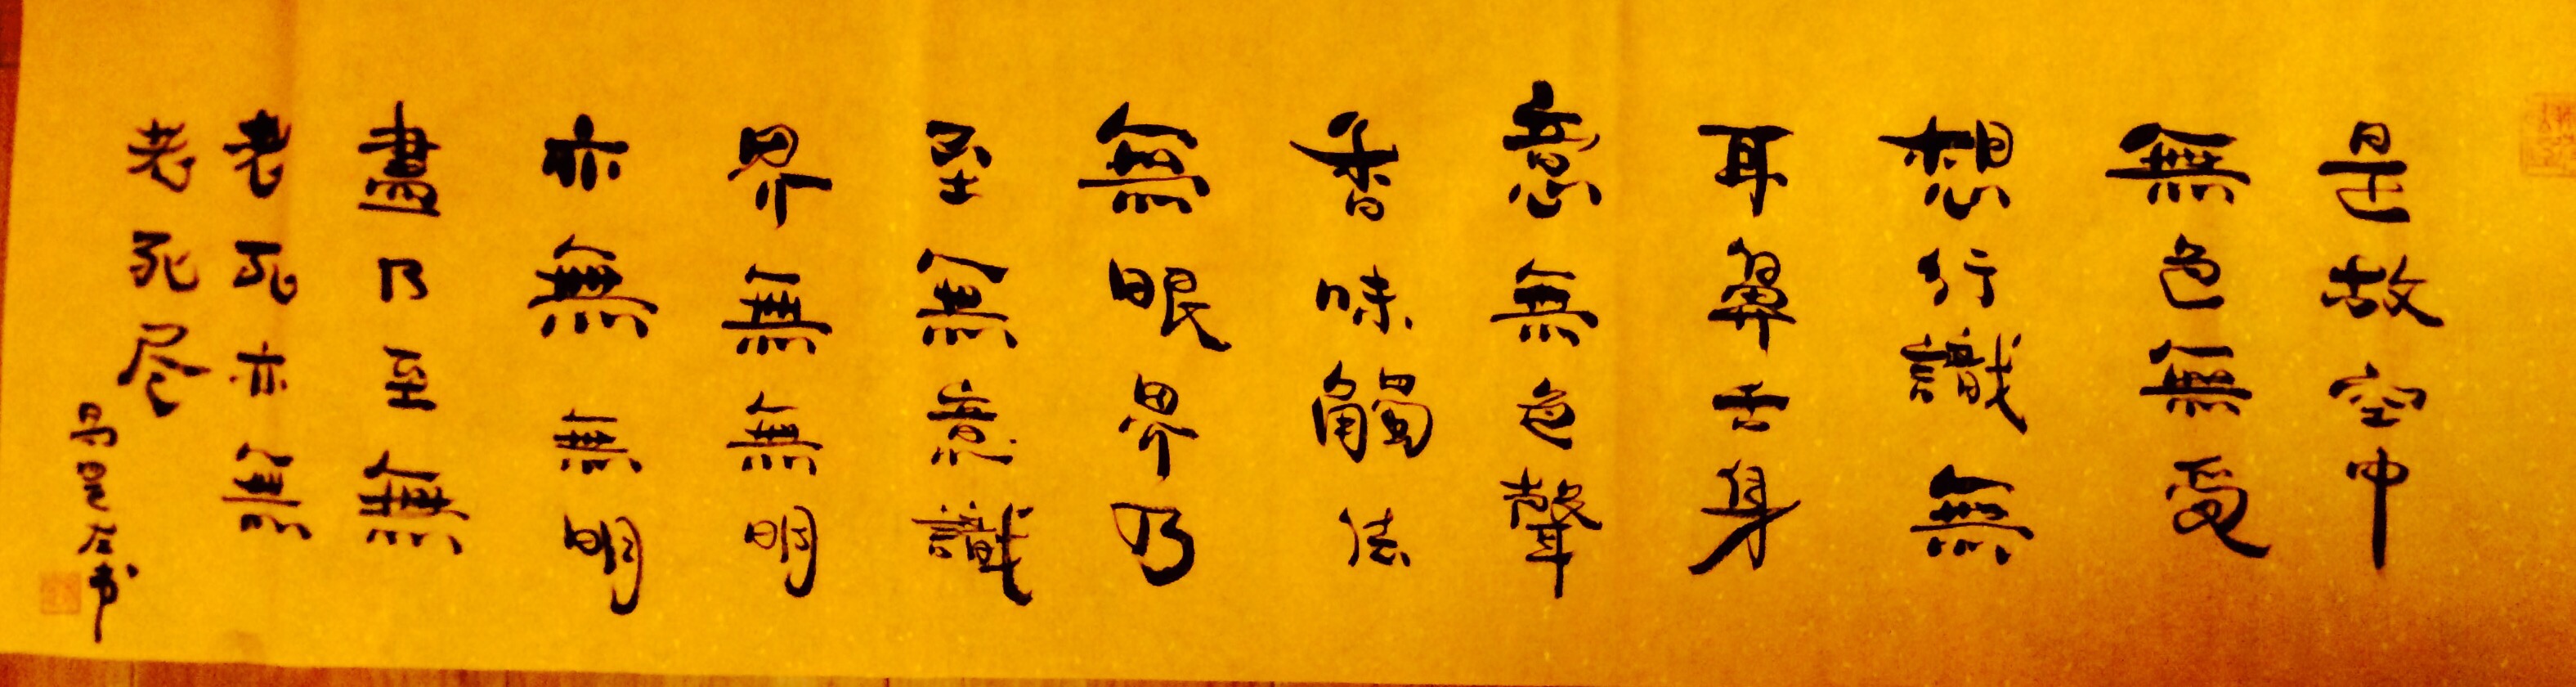 是故空中
無色無受
想行識無
耳鼻舌身
意無色聲
香味觸法
無眼界乃
至無意識
界無無明
亦無無明
盡乃至無
老死亦無
老死尽
書